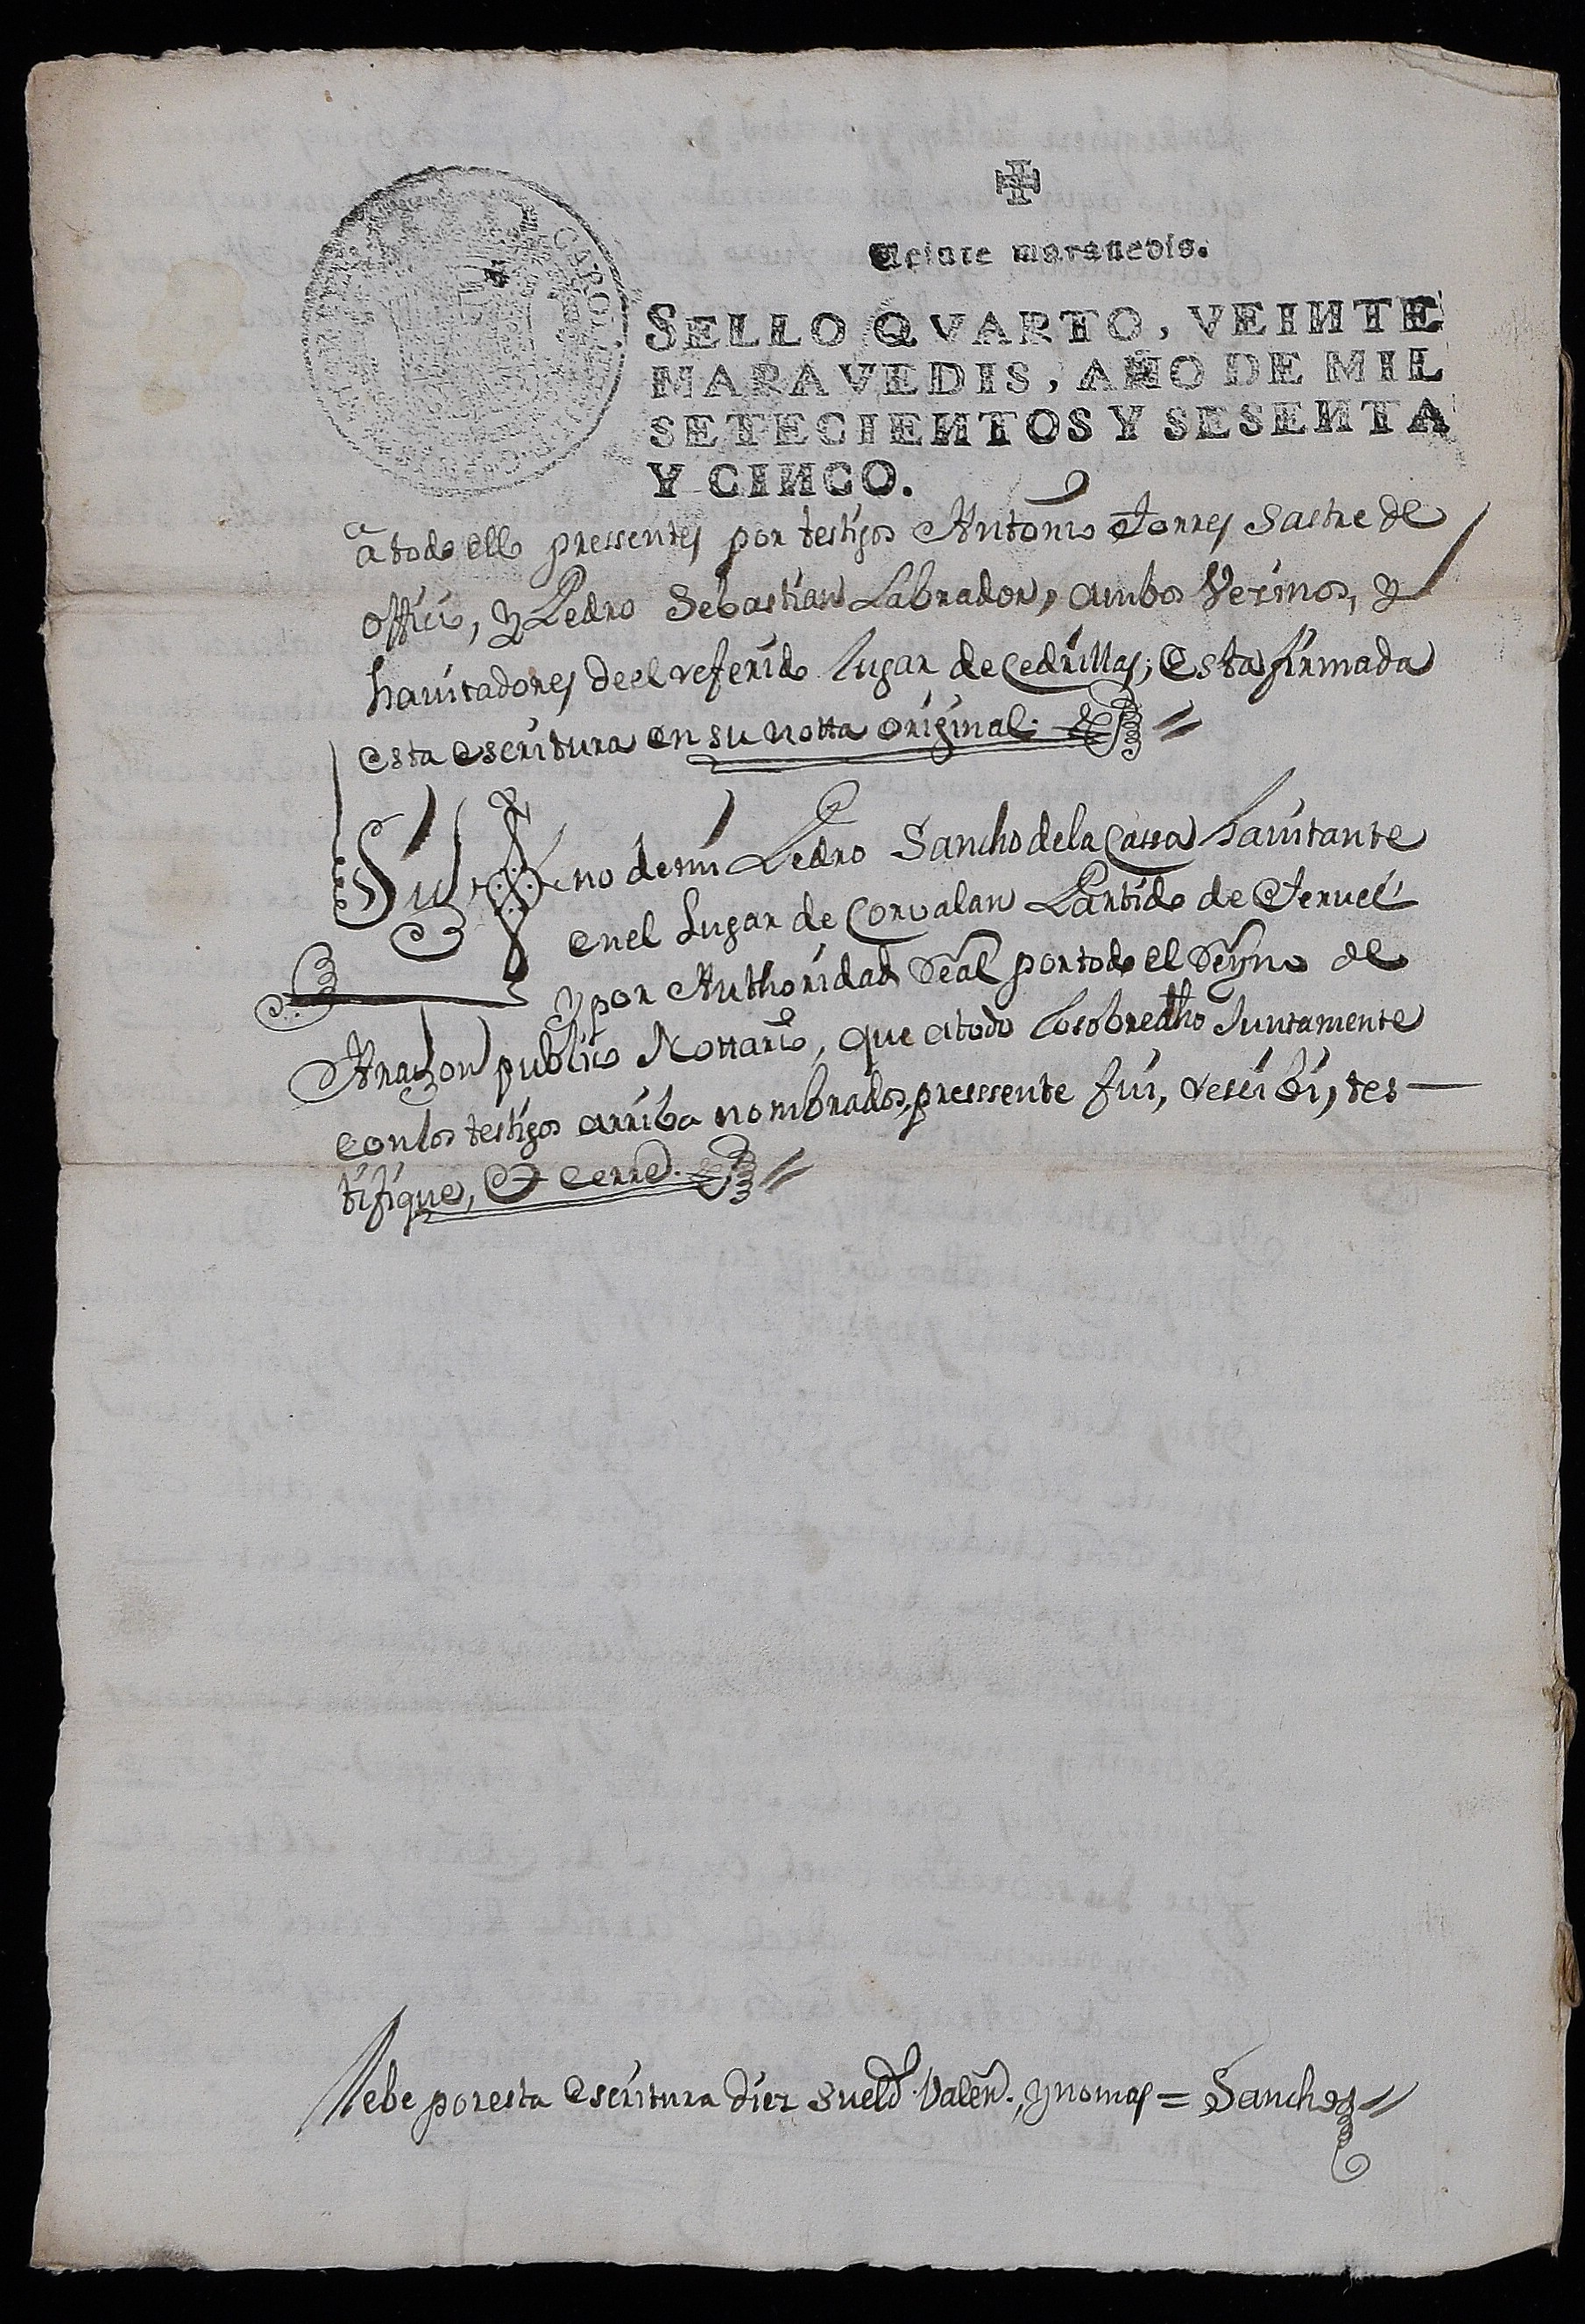 Veinte maravedis.
SELLO QVARTO, VEINTE
MARAVEDIS, AÑO DE MIL
SETECIENTOS Y SESENTA
Y CINCO.
a todo ello pressentes por testigos Antonio Torres Sastre de
officio, y Pedro Sebastian Labrador, ambos Vecinos, y
havitadores de el referido lugar de Cedrillas; Esta firmada
esta escritura en su notta original.
Sig no de mi Pedro Sancho de la Cassa havitante
en el Lugar de Corvalan Partido de Teruel
y por Authoridad Real por todo el Reyno de
Aragon publico Nottario, que a todo lo sobredho Juntamente
con los testigos arriba nombrados, presssente fui, rescibi, tes-
tifique, et cerre.
Debe por esta Escritura diez sueld. Valen., y no mas = Sancho
CAROL